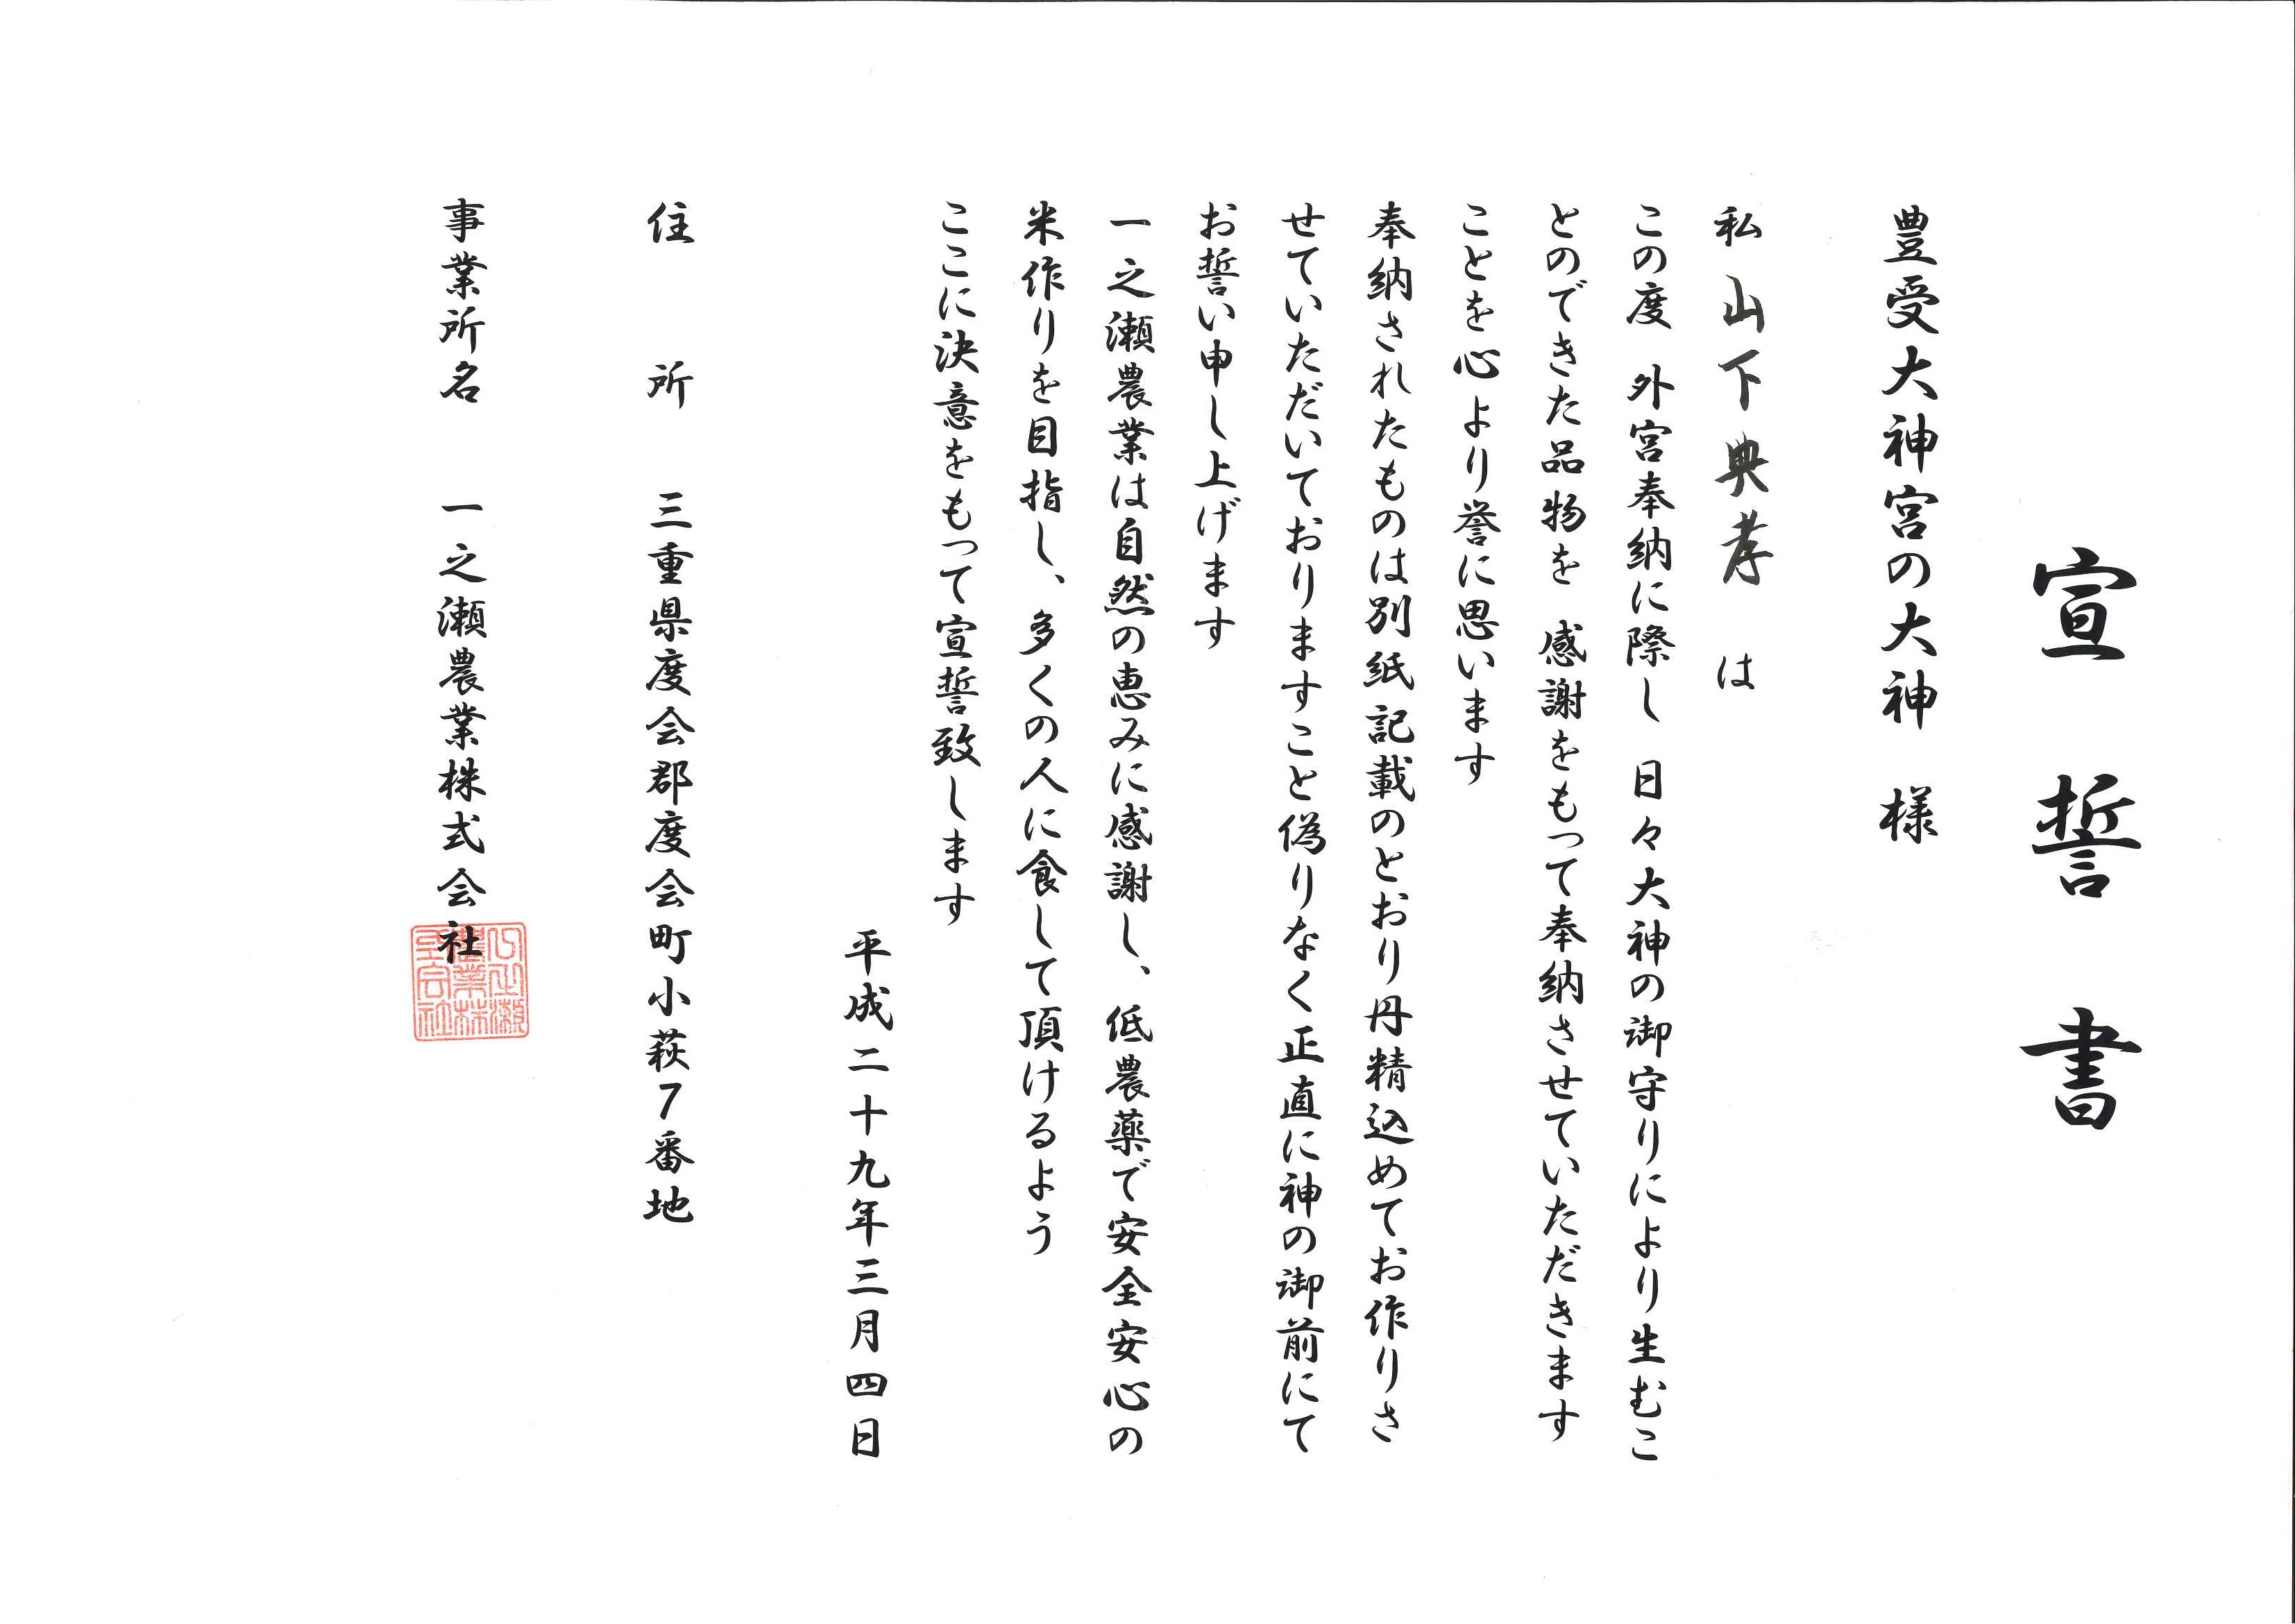 宣誓書
豊受大神宮の大神 様
私 山下典孝 は
この度 外宮奉納に際し 日々大神の御守りにより生むこ
とのできた品物を 感謝をもって奉納させていただきます
ことを心より誉に思います
奉納されたものは別紙記載のとおり丹精込めてお作りさ
せていただいておりますこと偽りなく正直に神の御前にて
お誓い申し上げます
一之瀬農業は自然の恵みに感謝し、低農薬で安全安心の
米作りを目指し、多くの人に食して頂けるよう
ここに決意をもって宣誓致します
平成二十九年三月四日
住所 三重県度会郡度会町小萩7番地
事業所名 一之瀬農業株式会社
一之瀬
農業株
式会社